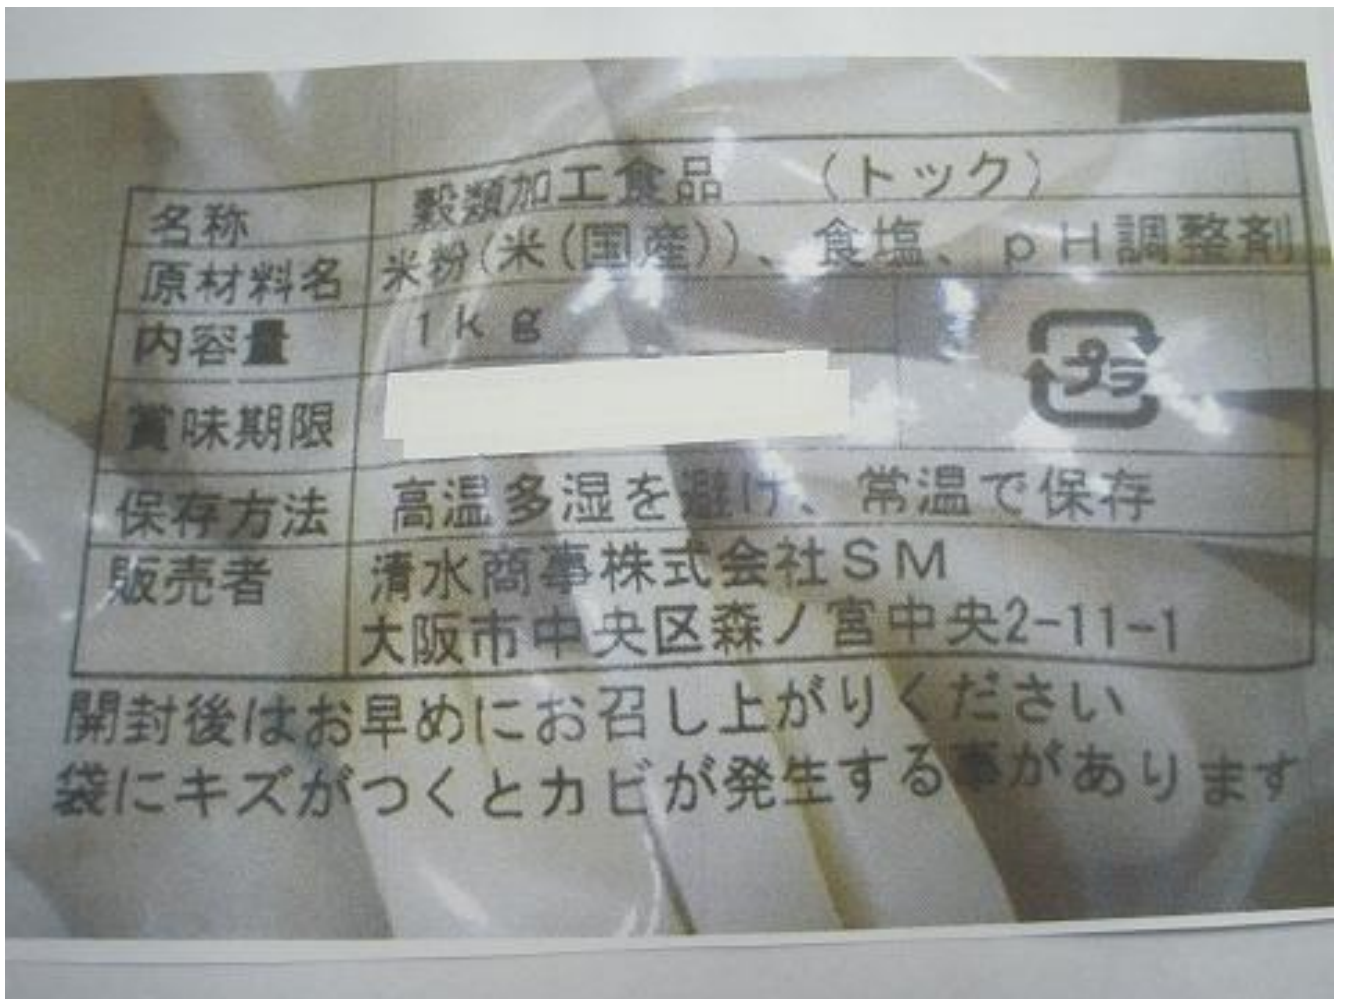 名称 穀類加工食品 （トック）
原材料名 米粉(米(国産))、食塩、pH調整剤
内容量 1kg
プラ
賞味期限
保存方法 高温多湿を避け、常温で保存
販売者 清水商事株式会社SM
大阪市中央区森ノ宮中央2-11-1
開封後はお早めにお召し上がりください
袋にキズがつくとカビが発生する事があります